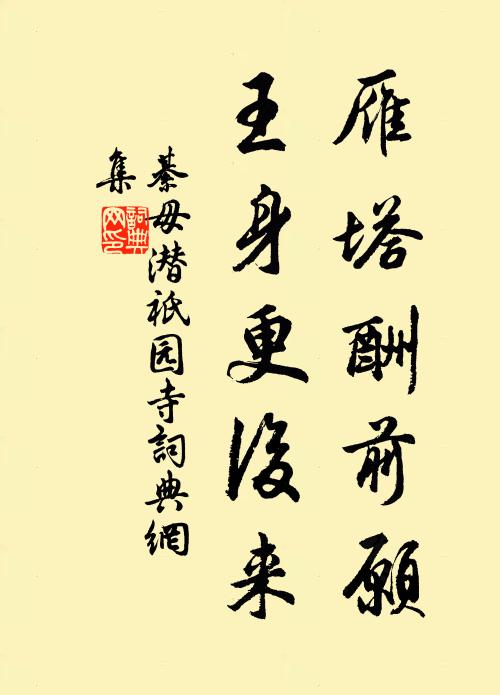 雁塔酬前願
王身更後来
綦毋潜祇园寺詞典網
集
詞典網